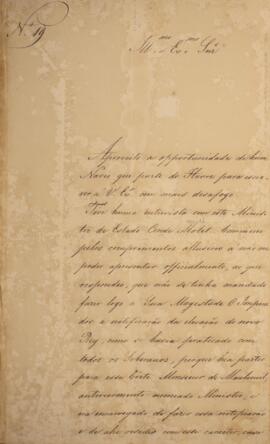 N.º 19
Ill.mo e Ex.mo Snr.
Aproveito a opportunidade de hum
Navio que parte do Havre para escre-
ver a V. Ex.ª com mais desafogo.
Tive huma entrevista com este Minis-
tro de Estado Conde Molet. Comecei
pelos comprimentos allusivo a não me
poder apresentar officialmente, ao que
respondeo, que não se tinha mandado
fazer logo a Sua Magestade O Impera-
dor a notificação da elevação do novo
Rey, como o havia praticado com
todos os Soberanos, porque hia partir
para essa Corte Monsieur de
anteriormente nomeado Ministro, e
hia encarregado de fazer essa notificação
e de ahi residir com esse caracter,